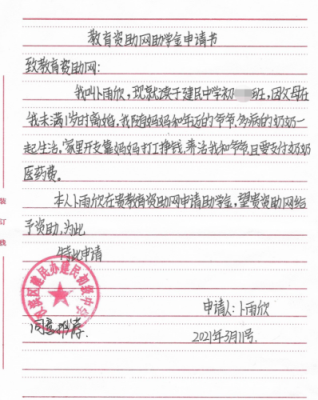 教育资助网助学金申请书
致教育资助网：
我叫卜雨欣，现就读于建民中学初班，因父母在
我未满1岁时离婚，我随妈妈和年迈的爷爷、多病的奶奶一
起生活，家里开支靠妈妈打工挣钱，养活我和爷爷，且要支付奶奶
医药费。
本人卜雨欣在贵教育资助网申请助学金，望贵资助网给
予资助，为此
特此申请
区建民办建民初级中学
同意推荐
申请人：卜雨欣
2021年3月11号
装
订
线